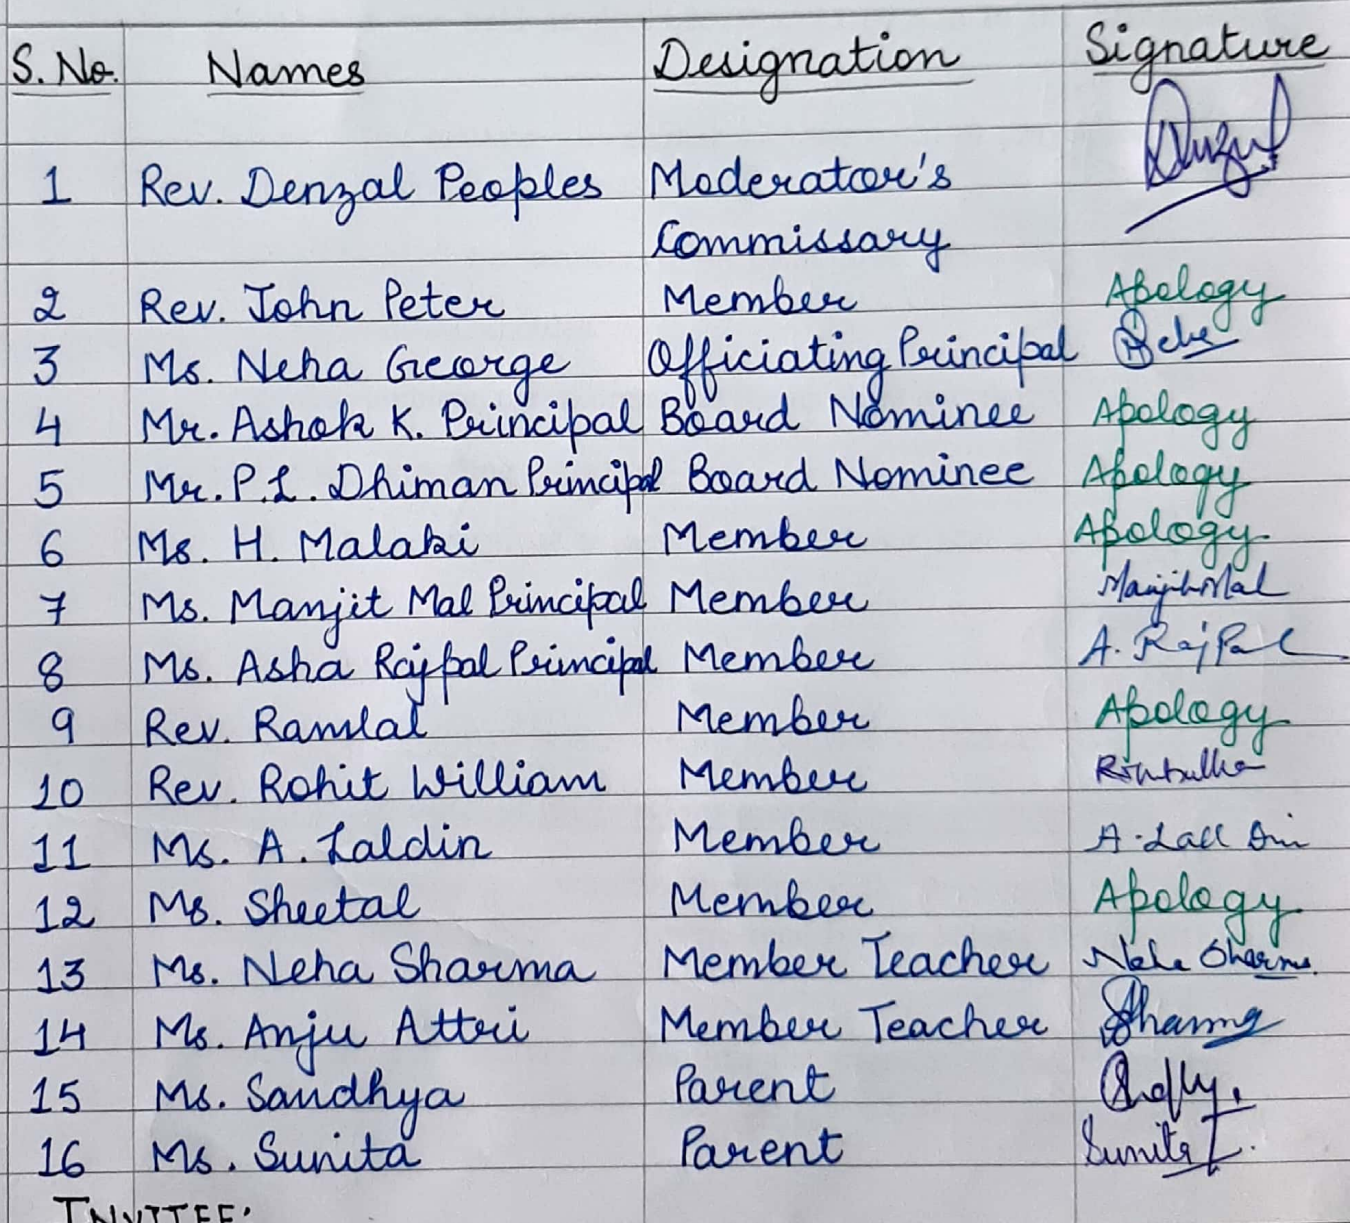 S. No. Names Designation Signature
1 Rev. Denzal Peoples Moderator's
Commissary
2 Rev. John Peter Member Apology
3 Ms. Neha George Officiating Principal
4 Mr. Ashok K. Principal Board Nominee Apology
5 Mr. P.L. Dhiman Principal Board Nominee Apology
6 Ms. H. Malaki Member Apology
7 Ms. Manjit Mal Principal Member Manjit Mal
8 Ms. Asha Rajpal Principal Member A. RajPal
9 Rev. Ramlal Member Apology
10 Rev. Rohit William Member
11 Ms. A. Laldin Member A. Lall Din
12 Ms. Sheetal Member Apology
13 Ms. Neha Sharma Member Teacher Neha Sharma
14 Ms. Anju Attri Member Teacher
15 Ms. Sandhya Parent
16 Ms. Sunita Parent Sunita
INVITEE: